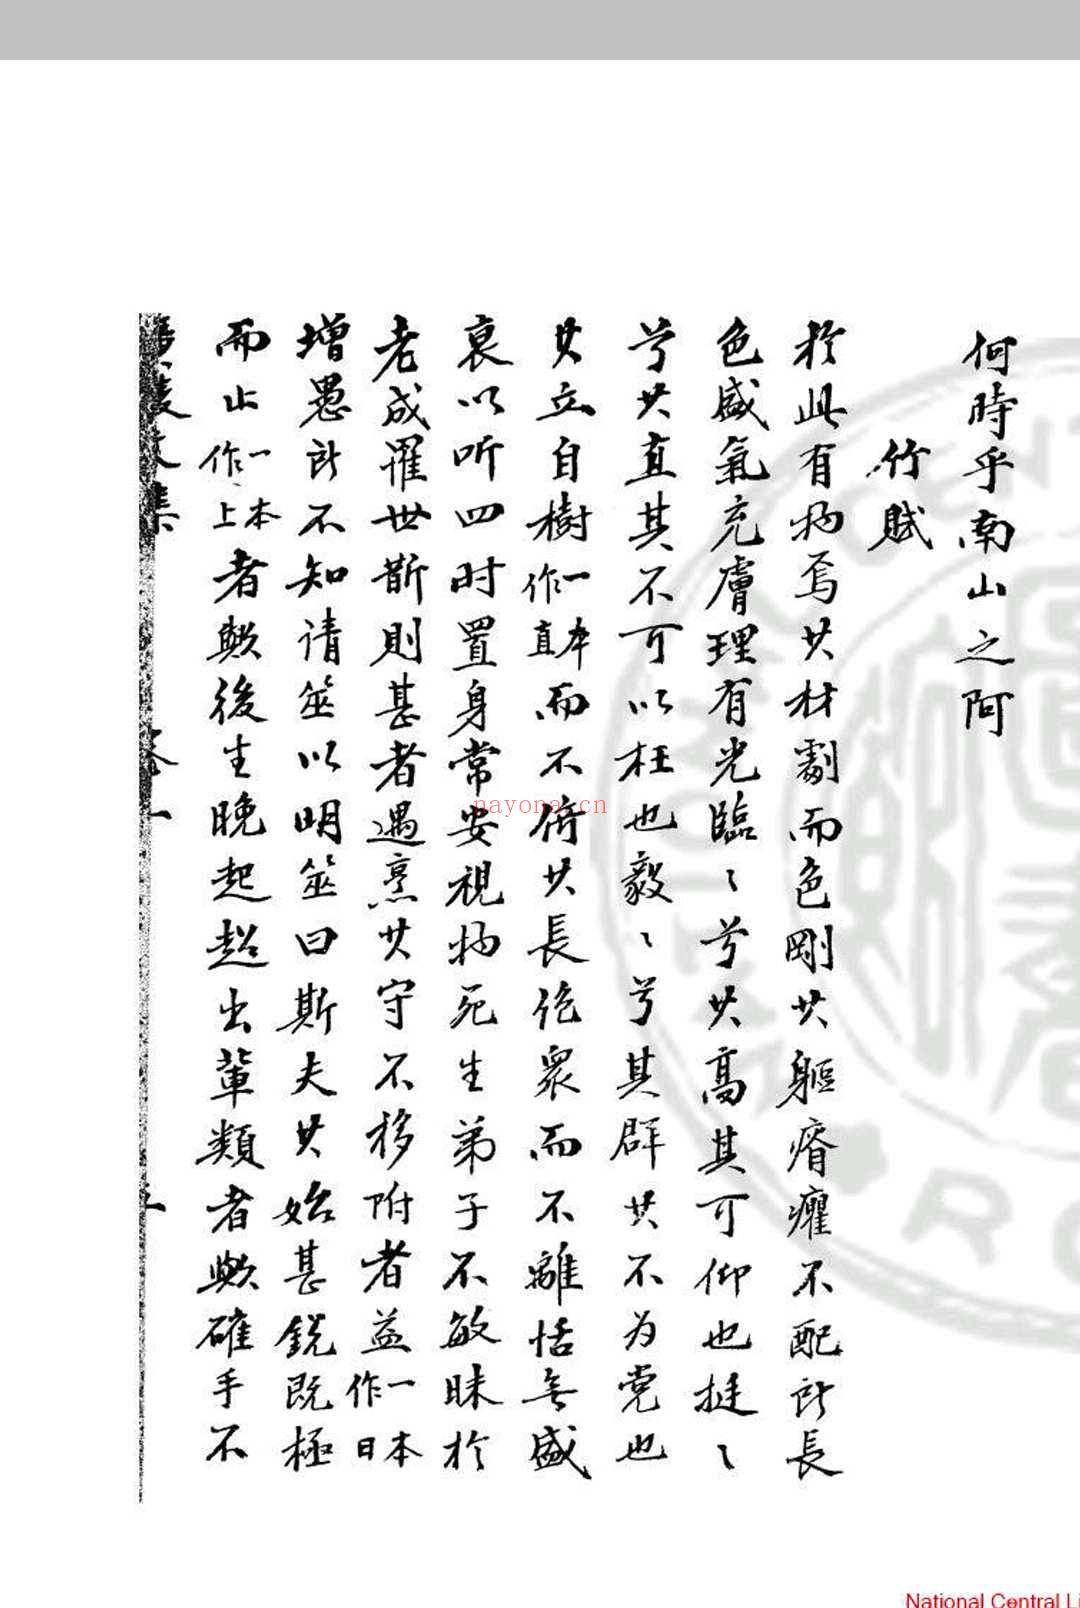 何時乎南山之阿
竹賦
於此有物焉其材劲而色剛其軀瘠癯不配所長
色盛氣充膚理有光臨〻兮其高其可仰也挺〻
兮其直其不可以枉也毅〻兮其群其不为党也
其立自樹一本作直而不俯其長絶衆而不離恬無盛
衰以听四时置身常安視物死生弟子不敏昧於
老成罹世斯則甚者遇烹其守不移附者益一本作日
增愚所不知请筮以明筮曰斯夫其始甚鋭既極
而止一本作上者歟後生晚起超出輩類者歟確乎不
文集
卷一
nayona.cn
National Central Li